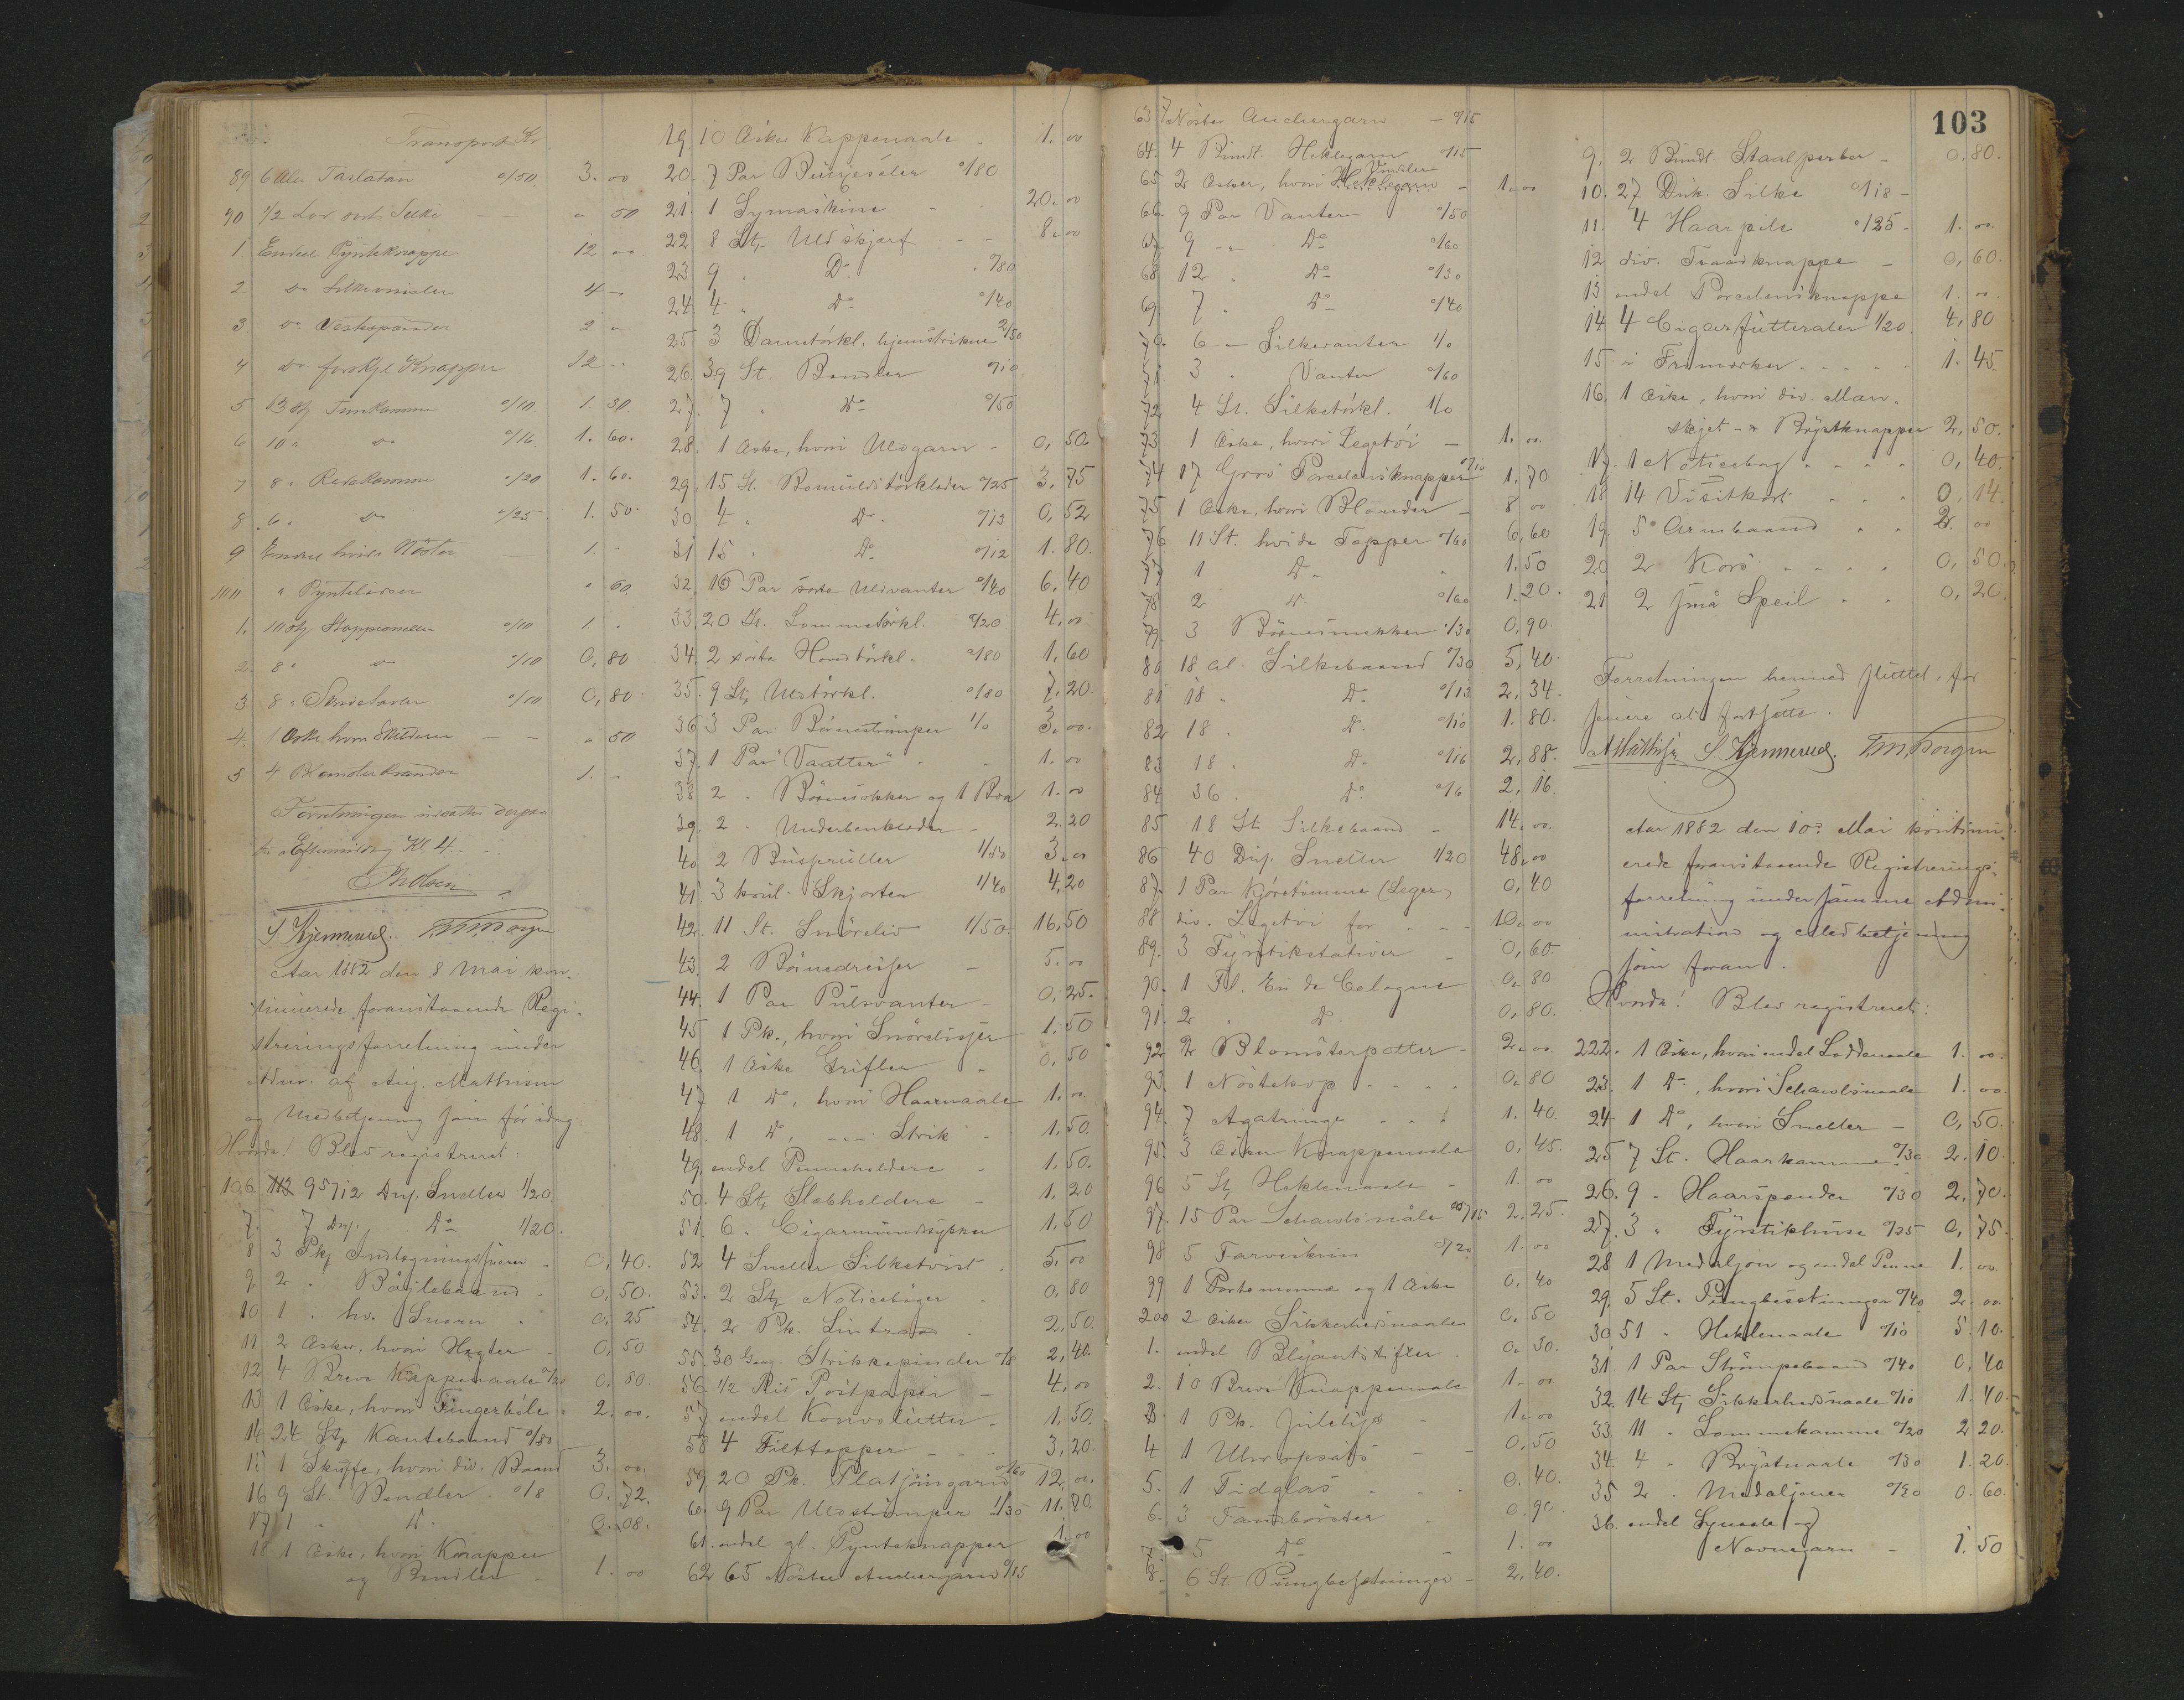 Transport Kr
89 6 Alen Tarlatan 0/50 3. 00
90 1/2 Lod sort Silke - " 50
1 Endeel Pynteknappe 12 00
2 do Silkevinsler 4 -
3 do Vestespænder 2 -
4 do forskjl Knapper 12 -
5 13 St Timkamme 0/10 1. 30
6 10 " do 0/16 1. 60.
7 8 " Redekamme 0/20 1. 60.
8 6 " do 0/25 1. 50.
9 Endeel hvide Nøster - 1. -
" Pyntelidser " 60
1. 10 St Stoppeneller 0/10 1. "
2. 8 " do 0/10 0,80
3 8 " 0/10 0,80
4. 1 Æske hvori - - " 50
5 4 Blomsterkrandse 1. -
Forretningen udsattes derpaa
til Eftermiddag Kl 4.
S. Kjennerud. T.M. Borgen
Aar 1882 den 8 Mai kon-
tinuerede foranstaaende Regi-
streringsforretning under
Adm. af Aug. Mathisen
og Medbetjening som før idag:
Hvorda! Blev registreret:
106 95 7/12 Dus. Sneller 1/20.
7. 7 Dus. Do 1/20.
8 3 Pk 0,40.
9. 2 " Bøilebaand - 0,50.
10 1 " hv. Snorer " 0,25
11 2 Æsker, hvori Hægter - 0,50.
12 4 Breve Knappenaale 0/20 0,80.
13 1 Æske, hvori Fingerbøle " 2.00.
14 24 St Kantebaand 0/80
15 1 Skuffe, hvori div. Baand 3.00.
16 9 St. Bendler 0/8 0.72.
17 1 " Do. 0.08.
18 1 Æske, hvori Knapper
og Bendler - 1.00
19. 10 Æsker Knappenaale - 1.00
20. 7 Par Buxeseler 0/80
21. 1 Symaskine - - 20.00
22. 8 St. Uldskjærf - - 8.00
23 9 " Do. 0/80
24. 4 " Do 0/40
25 3 Dametørkl. hjemstrikne 2/50
26. 39 St. Bendler 0/10
27. 7 " Do 0/50
28. 1 Æske, hvori Uldgarn - 0,50.
29. 15 St. Bomuldstørklæder 0/25 3,75
30. 4 " Do. 0/13 0,52
31 15 " Do 0/12 1.80.
32. 16 Par sorte Uldvanter 0/40 6,40
33. 20 St. Lommetørkl. 0/20 4,00
34. 2 sorte Hovedtørkl. 0/80 1,60
35. 9 St. Uldtørkl. 0/80 7,20.
36 3 Par Børnestrømper 1/0 3.00.
37. 1 Par "Vaatter" - - 1.00
38 2 " Børnesokker og 1 Boa 1.00
39. 2 " Underbenklæder - 2.20
40 2 Buseruller 1/50 3.00
41 3 koul. Skjorter 1/40 4,20
42. 11 St. Snøreliv 1/50. 16,50
43. 2 Børnedresser - 5.00
44. 1 Par Pulsvanter - 0,25.
45 1 Pk., hvori Snørelisser 1.50
46. 1 Æske Grifler " 0,50
47 1 Do, hvori Haarnaale 1.00
48. 1 Do, -"- Strik - 1,50.
49. endel Penneholdere - 1,50.
50. 4 St. Slæbholdere - 1,20
51. 6 " Cigarmundstykker 1,50
52 4 Sneller Silketvist . 5.00
53. 2 St Noticebøger " 0,80
54. 2 Pk. Lintraad . 2.50.
55. 30 Gang. Strikkepinder 0/8 2,40.
56. 1/2 Ris Postpapir - 4,00
57 endel Konvolutter - 1,50.
58 4 Filttopper - - - 3,20.
59. 20 Pk. Platjøngarn 0/60 12,00.
60. 9 Par Uldstrømper 1/30 11.70.
61. endel gl. Pynteknapper 1.00
62 65 Nøster Anchergarn 0/15
63 7 Nøster Anchergarn - 0/15
64. 4 Bundt. Heklegarn 0/15
65 2 Æsker, hvori Heklegarn Vindsler - 1.00
66. 9 Par Vanter 0/50
67. 9 -"- Do 0/60
68 12 " Do 0/30
69. 7 " Do 0/40
70. 6 - Silkevanter 1/0
71 3 " Vanter 0/60
72 4 St. Silketørkl. 1/0
73 1 Æske, hvori Legetøi - 1.00
74 17 Gros Porcelænsknapper 0/10 1,70
75 1 Æske, hvori Blonder - 8 00
76 11 St. hvide Topper 0/60 6,60
77 1 Do " 1.50
78 2 Do. 0/60 1.20.
79. 3 Børnesmekker 0/30 0,90.
80 18 al. Silkebaand 0/30 5,40.
81 18 " Do 0/13 2,34.
82 18 " Do. 0/10 1.80.
83 18 " Do 0/16 2,88.
84 36 " Do. 0/6 2,16.
85 18 St Silkebaand - 14.00.
86 40 Dus. Sneller 1/20 48,00
87. 1 Par Kjøretømme (Leger) 0,40
88 div. Legetøi for - - - 10.00
89. 3 Fyrstikstativer - 0,60.
90. 1 Fl. Eu de Cologne 0,80
91. 2 " Do. 0,80.
92 2 Blomsterpotter - 2.00
93. 1 Nøstekop - - - 0,80
94. 7 Agatringe - - - 1,40.
95. 3 Æsker Knappenaale 0,45.
96 5 St. Heklenaale - 1.00
97. 15 Par Schawlsnåle 0/15 2.25.
98 5 Farveskrin 0/20 1.00
99 1 Portemonnæ og 1 Æske 0,40
200 2 Æsker Sikkerhedsnaale 0,50
1. endel Blyantstifter . 0,30.
2. 10 Breve Knappenaale 1.00
3. 1 Pk. Julelys - 1.00
4 1 Uhropsats - - 0,50
5. 1 Tidglas - - - 0.40.
6. 3 Tandbørster " 0.90
7. 5 Do - 1.00
8. 6 St. Pungbesætninger - 2,40.
103
9. 2 Bundt. Staalperler - 0,80.
10. 27 Duk. Silke 0/18 -
11. 4 Haarpile 0/25 - 1.00
12 div. Traadknappe - 0,60.
13 endel Porcelænsknappe 1.00
14. 4 Cigarfutteraler 1/20. 4,80
15 " Frimærker - - - - 1.45
16. 1 Æske, hvori div. Man-
skjet- & Brystknapper 2,50.
17. 1 Noticebog - - - - 0,40.
18 14 Visitkort - - - 0,14.
19. 5 Armbaand " " 2.00
20 2 Kors - - - - 0,50.
21 2 små Speil - - 0,20.
Forretningen hermed sluttet, for
senere at fortsætte.
AMathisen S. Kjennerud. T.M. Borgen
Aar 1882 den 10de Mai kontinu-
erede foranstaaende Registrerings-
forretning under samme Admi-
nistration og Medbetjening
som foran.
Hvorda! Blev registreret:
222. 1 Æske, hvori endel Loddenaale 1.00.
23. 1 Do, hvori Schawlsnaale 1.00
24 1 Do, hvori Sneller - 0,50.
25 7 St. Haarkamme 0/30 2.10.
26. 9 - Haarspænder 0/30 2,70.
27. 3 " Fyrstikhuse 0/25 0,75.
28 1 Medaljon og endel Penne 1.00
29. 5 St. Pungbesætninger 0/40 2.00
30 51 " Heklenaale 0/10 5.10.
31. 1 Par Strømpebaand 0/40 0,40
32. 14 St Sikkerhedsnaale 0/10 1.40.
33. 11 " Lommekamme 0/20 2 20.
34. 4 " Brystnaale 0/30 1.20.
35 2 " Medaljoner 0/30 0.60.
36. endel Synaale og
Navnegarn - 1.50